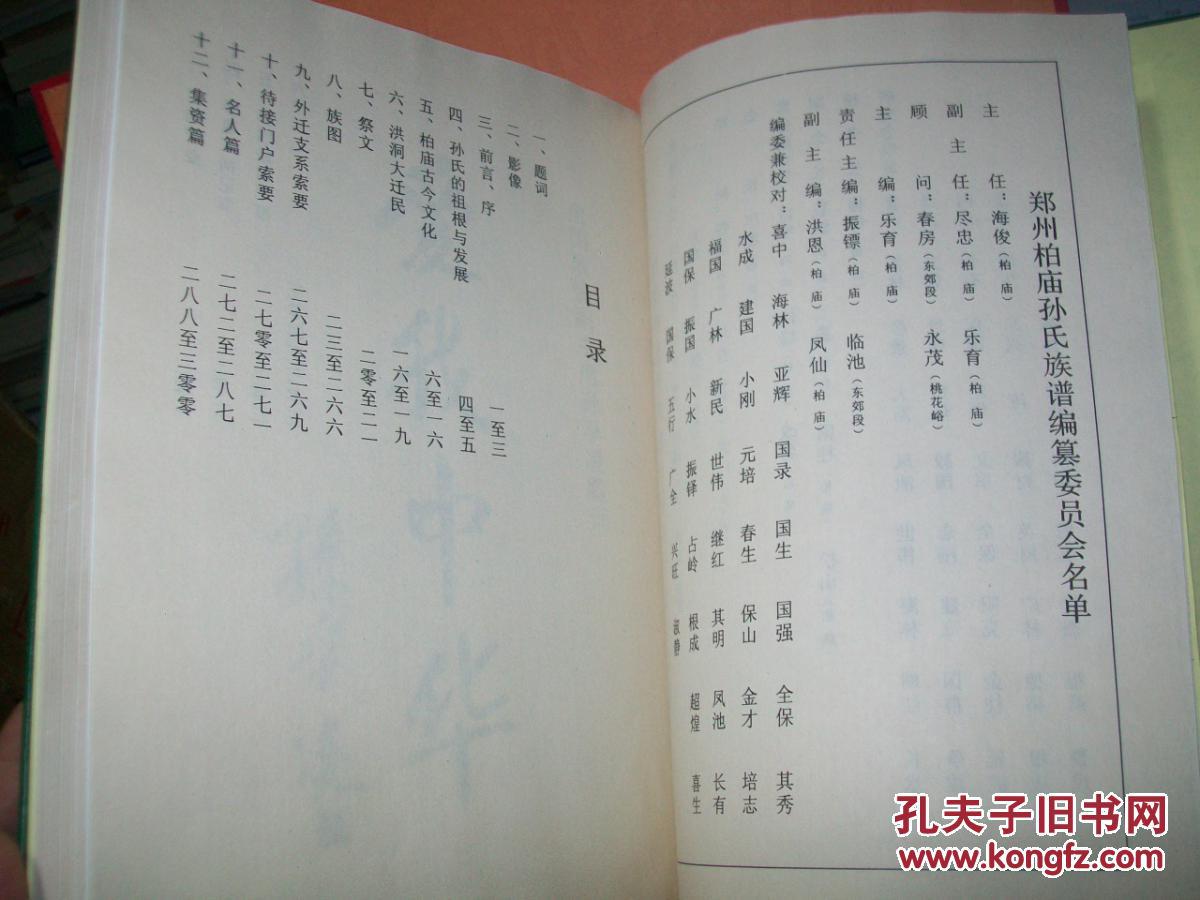 郑州柏庙孙氏族谱编篡委员会名单
主任：海俊（柏庙）
副主任：尽忠（柏庙） 乐育（柏庙）
顾问：春房（东郊段） 永茂（桃花峪）
主编：乐育（柏庙）
责任主编：振镖（柏庙） 临池（东郊段）
副主编：洪恩（柏庙） 凤仙（柏庙）
编委兼校对：喜中 海林 亚辉 国录 国生 国强 全保 其秀
水成 建国 小刚 元培 春生 保山 金才 培志
福国 广林 新民 世伟 继红 其明 凤池 长有
国保 振国 小水 振铎 占岭 根成 超煌 喜生
延波 国保 五行 广全 兴旺 淑静
目录
一、题词
二、影像
三、前言、序 一至三
四、孙氏的祖根与发展 四至五
五、柏庙古今文化 六至一六
六、洪洞大迁民 一六至一九
七、祭文 二零至二一
八、族图 二三至二六六
九、外迁支系索要 二六七至二六九
十、待接门户索要 二七零至二七一
十一、名人篇 二七二至二八七
十二、集资篇 二八八至三零零
孔夫子旧书网
www.kongfz.com